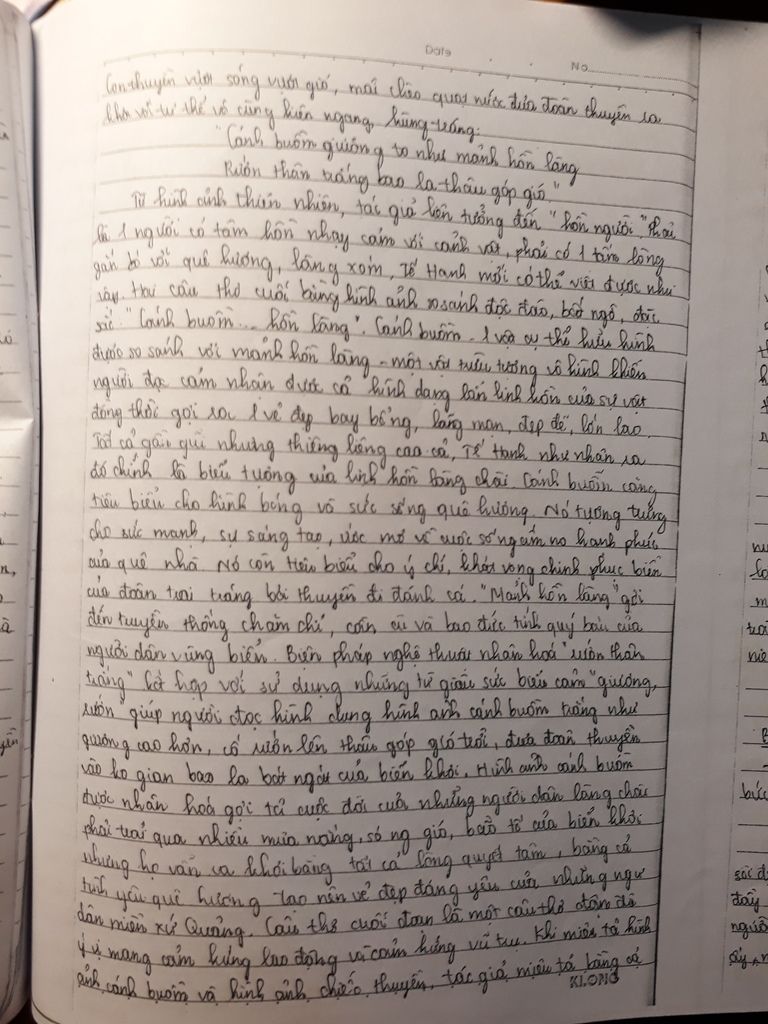 Date No
Con thuyền vượt sóng vượt gió, mái chèo quạt nước đưa đoàn thuyền ra
khơi với tư thế vô cùng hiên ngang, hùng tráng:
"Cánh buồm giương to như mảnh hồn làng
Rướn thân trắng bao la thâu góp gió"
Từ hình ảnh thiên nhiên, tác giả liên tưởng đến "hồn người". Phải
là 1 người có tâm hồn nhạy cảm với cảnh vật, phải có 1 tấm lòng
gắn bó với quê hương, làng xóm, Tế Hanh mới có thể viết được như
vậy. Hai câu thơ cuối bằng hình ảnh so sánh độc đáo, bất ngờ, đặc
sắc "Cánh buồm... hồn làng". Cánh buồm - 1 vật cụ thể hữu hình
được so sánh với mảnh hồn làng - một vật trừu tượng vô hình khiến
người đọc cảm nhận được cả hình dạng lẫn linh hồn của sự vật
đồng thời gợi ra 1 vẻ đẹp bay bổng, lãng mạn, đẹp đẽ, lớn lao.
Tất cả gần gũi nhưng thiêng liêng cao cả, Tế Hanh như nhận ra
đó chính là biểu tượng của linh hồn làng chài. Cánh buồm căng
tiêu biểu cho hình bóng và sức sống quê hương. Nó tượng trưng
cho sức mạnh, sự sáng tạo, ước mơ về cuộc sống ấm no hạnh phúc
của quê nhà. Nó còn tiêu biểu cho ý chí, khát vọng chinh phục biển
của đoàn trai tráng bơi thuyền đi đánh cá. "Mảnh hồn làng" gợi
đến truyền thống chăm chỉ, cần cù và bao đức tính quý báu của
người dân vùng biển. Biện pháp nghệ thuật nhân hoá "rướn thân
trắng" kết hợp với sử dụng những từ giàu sức biểu cảm "giương,
rướn" giúp người đọc hình dung hình ảnh cánh buồm trắng như
giương cao hơn, cố rướn lên thâu góp gió trời, đưa đoàn thuyền
vào ko gian bao la bát ngát của biển khơi. Hình ảnh cánh buồm
được nhân hoá gợi tả cuộc đời của những người dân làng chài
phải trải qua nhiều mưa nắng, sóng gió, bão tố của biển khơi
nhưng họ vẫn ra khơi bằng tất cả lòng quyết tâm, bằng cả
tình yêu quê hương tạo nên vẻ đẹp đáng yêu của những ngư
dân miền xứ Quảng. Câu thơ cuối đoạn là một câu thơ đậm đà
ý vị mang cảm hứng lao động và cảm hứng vũ trụ. Khi miêu tả hình
ảnh cánh buồm và hình ảnh chiếc thuyền, tác giả miêu tả bằng cả
KLONG